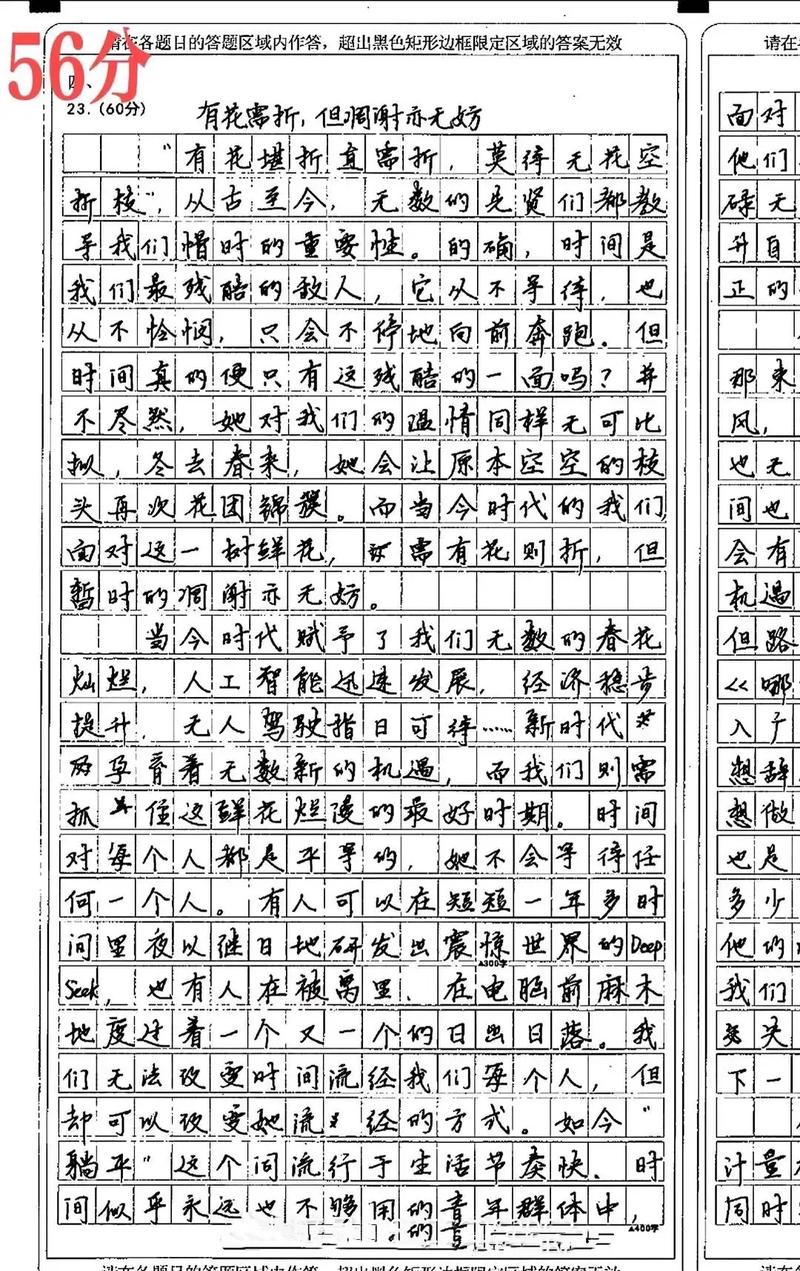 请在各题目的答题区域内作答，超出黑色矩形边框限定区域的答案无效
56分
四、
23.(60分)
有花需折，但凋谢亦无妨
“有花堪折直需折，莫待无花空
折枝”，从古至今，无数的先贤们都教
导我们惜时的重要性。的确，时间是
我们最残酷的敌人，它从不等待，也
从不怜悯，只会不停地向前奔跑。但
时间真的便只有这残酷的一面吗？并
不尽然，她对我们的温情同样无可比
拟，冬去春来，她会让原本空空的枝
头再次花团锦簇。而当今时代的我们，
面对这一树鲜花，需有花则折，但
暂时的凋谢亦无妨。
当今时代赋予了我们无数的春花
灿烂，人工智能迅速发展，经济稳步
提升，无人驾驶指日可待……新时代
孕育着无数新的机遇，而我们则需
抓住这鲜花烂漫的最好时期。时间
对每个人都是平等的，她不会等待任
何一个人。有人可以在短短一年多时
间里夜以继日地研发出震惊世界的Deep
▲300字
Seek，也有人在被窝里、在电脑前麻木
地度过着一个又一个的日出日落。我
们无法改变时间流经我们每个人，但
却可以改变她流经的方式。如今“
躺平”这个词流行于生活节奏快、时
间似乎永远也不够用的青年群体中，
▲400字
请在各题目的答题区域内作答，超出黑色矩形边框限定区域的答案无效
请在
面对
他们
碌无
升自
正的
那来
风，
也无
间也
会有
机遇
但路
《哪
入于
想辞
想做
也是
多少
他的
我们
失
下一
计量
同时
请在